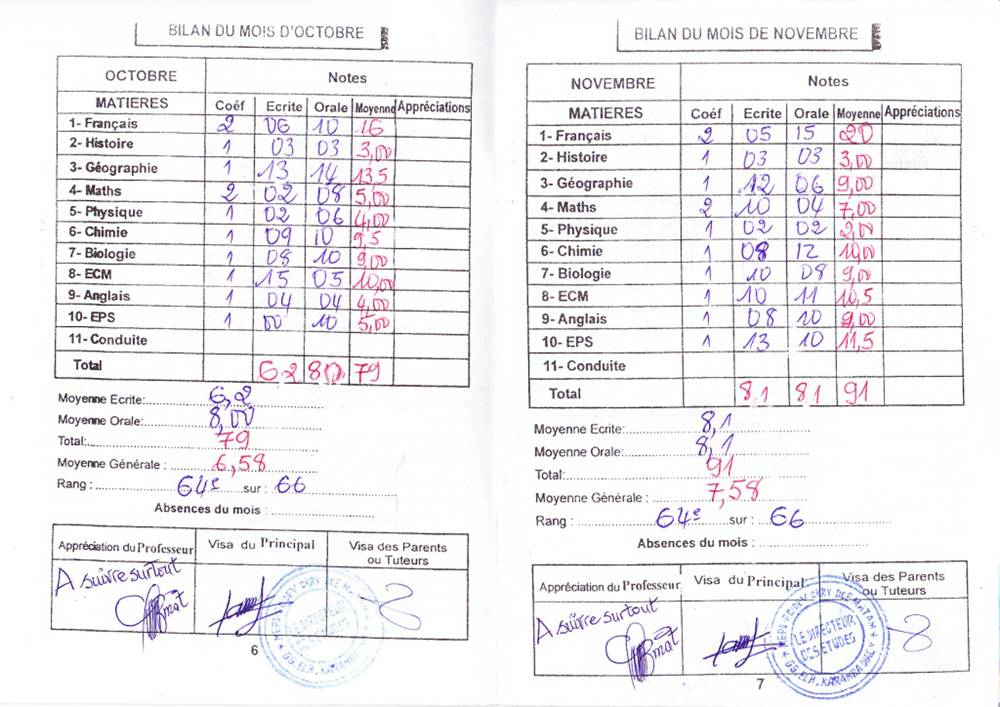 BILAN DU MOIS D'OCTOBRE
OCTOBRE Notes
MATIERES Coéf Ecrite Orale Moyenne Appréciations
1- Français 2 06 10 16
2- Histoire 1 03 03 3,00
3- Géographie 1 13 14 13,5
4- Maths 2 02 08 5,00
5- Physique 1 02 06 4,00
6- Chimie 1 09 10 9,5
7- Biologie 1 08 10 9,00
8- ECM 1 15 05 10,00
9- Anglais 1 04 04 4,00
10- EPS 1 00 10 5,00
11- Conduite
Total 62 80 79
Moyenne Ecrite: 6,2
Moyenne Orale: 8,00
Total: 79
Moyenne Générale : 6,58
Rang : 64e sur : 66
Absences du mois :
Appréciation du Professeur Visa du Principal Visa des Parents ou Tuteurs
A suivre surtout
mat
LE DIRECTEUR
DES ETUDES
6
BILAN DU MOIS DE NOVEMBRE
NOVEMBRE Notes
MATIERES Coéf Ecrite Orale Moyenne Appréciations
1- Français 2 05 15 20
2- Histoire 1 03 03 3,00
3- Géographie 1 12 06 9,00
4- Maths 2 10 04 7,00
5- Physique 1 02 02 2,00
6- Chimie 1 08 12 10,00
7- Biologie 1 10 08 9,00
8- ECM 1 10 11 10,5
9- Anglais 1 08 10 9,00
10- EPS 1 13 10 11,5
11- Conduite
Total 8,1 81 91
Moyenne Ecrite: 8,1
Moyenne Orale: 8,1
Total: 91
Moyenne Générale : 7,58
Rang : 64e sur : 66
Absences du mois :
Appréciation du Professeur Visa du Principal Visa des Parents ou Tuteurs
A suivre surtout
mat
LE DIRECTEUR
DES ETUDES
GS. ELH. KARAMBA
7